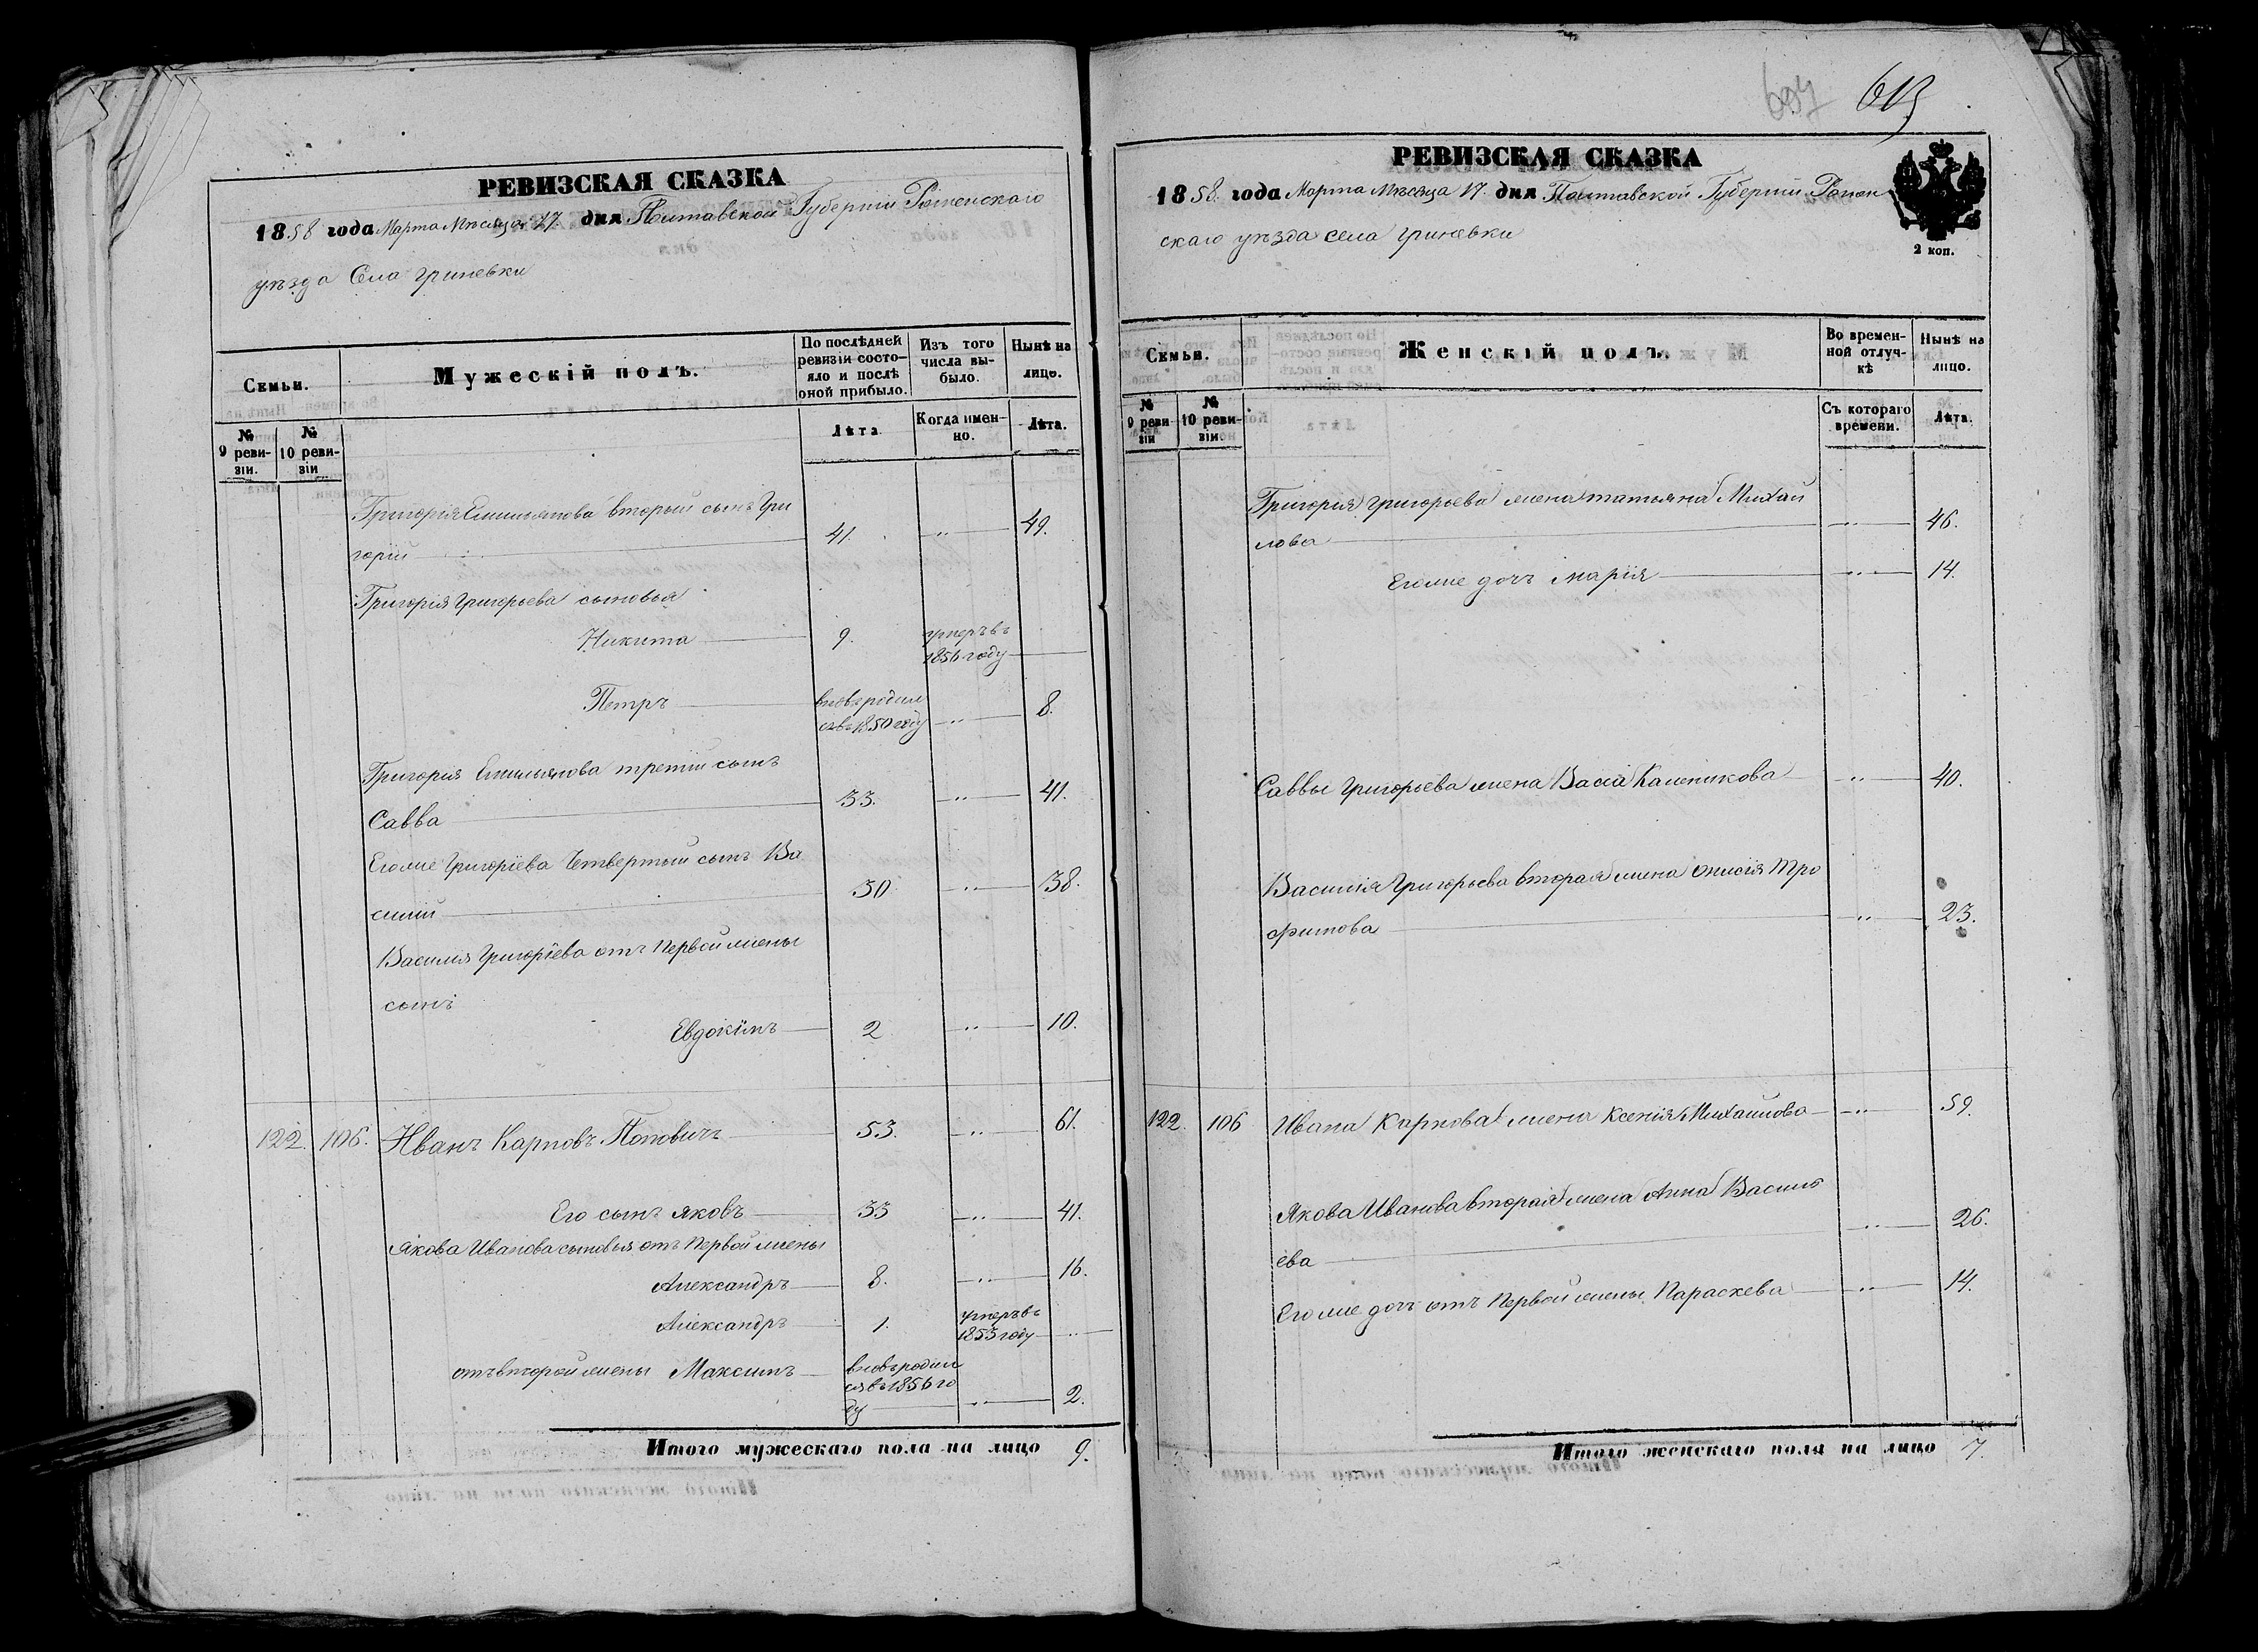 613
РЕВИЗСКАЯ СКАЗКА
1858 года Марта Месяца 17. дня Полтавской Губерніи Роменскаго
уезда Села Гриневки
Семьи.
Мужескій полъ.
По послѣдней ревизіи состояло и послѣ оной прибыло.
Изъ того числа выбыло.
Нынѣ на лицо.
№ 9 ревизіи.
№ 10 ревизіи
Лѣта
Когда именно.
Лѣта.
Григорія Емильянова вторый сынъ Гри
горій 41. 49.
Григорія Григорьева сыновья
Никита 9. умеръ въ 1856 году
Петръ вновь родил ся въ 1850 году 8.
Григорія Емильянова третій сынъ
Савва 33. 41.
Его же Григоріева Четвертый сынъ Ва
силій 30 38.
Василія Григоріева отъ Первой жены
сынъ
Евдокімъ 2 10.
122. 106. Иванъ Карповъ Поповичъ 53. 61.
Его сынъ Яковъ 33 41.
Якова Иванова сыновья отъ Первой жены
Александръ 8. 16.
Александръ 1. умеръ въ 1853 году
отъ второй жены Максимъ вновь родил ся въ 1856 го ду 2.
Итого мужескаго пола на лицо 9.
РЕВИЗСКАЯ СКАЗКА
1858. года Марта Месяца 17. дня Полтавской Губерніи Ромен
скаго уезда села Гриневки
2 коп.
Семьи.
Женскій полъ.
Во временной отлучкѣ
Нынѣ на лицо.
№ 9 ревизіи
№ 10 ревизіи.
Съ котораго времени.
Лѣта.
Григорія Григорьева жена Татьяна Михай
лова 46.
Его же дочь Марія 14.
Саввы Григорьева жена Васса Каленикова 40.
Василія Григорьева вторая жена Онисія Тро
фимова 23.
122. 106 Ивана Карпова жена Ксенія Михайлова 59.
Якова Иванова вторая жена Анна Василь
ева 26.
Его же дочь отъ Первой жены Параскева 14.
Итого женскаго пола на лицо 7.